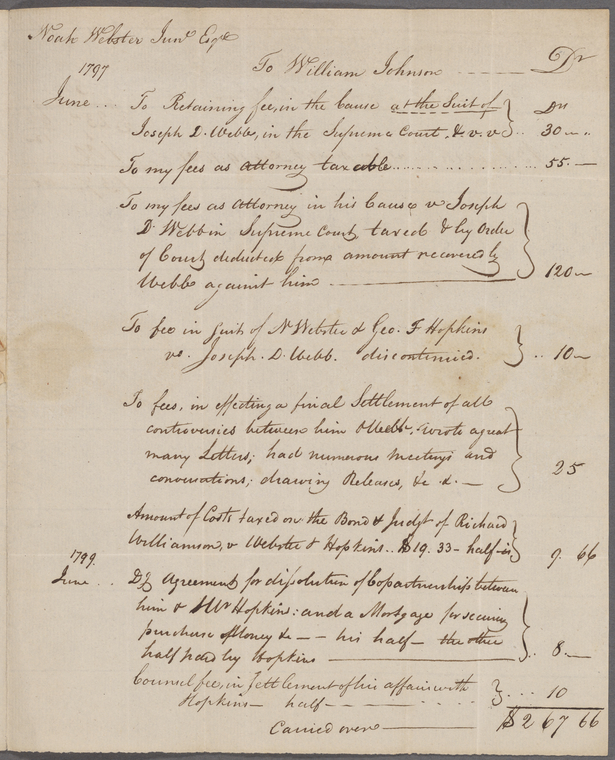 Noah Webster Junr Esqr
1797
To William Johnson ------ Dr
June .. To Retaining fee, in the Cause at the Suit of
Joseph D. Webb, in the Supreme Court, &. v. v 30
To my fees as attorney taxable ............ 55.—
To my fees as attorney in his Cause v Joseph
D. Webb in Supreme Court taxed & by Order
of Court deducted from amount recovered by
Webb against him ———— 120—
To fee in Suit of N Webster & Geo. F Hopkins
vs. Joseph. D. Webb. discontinued. .. 10—
To fees, in effecting a final Settlement of all
controversies between him & Webb, wrote a great
many Letters; had numerous meetings and
conversations; drawing Releases, &c. &. — 25
Amount of Costs taxed on the Bond & Judgt of Richard
Williamson, v Webster & Hopkins.. $19.33 - half is 9. 66
1799.
June .. Dg Agreement for dissolution of Copartnership between
him & Mr Hopkins: and a Mortgage for securing
purchase Money &c — — his half — the other
half paid by Hopkins ———— .. 8.—
Counsel fee, in Settlement of his affairs with
Hopkins — half — - - - - - .... 10
Carried over ———— $267 66